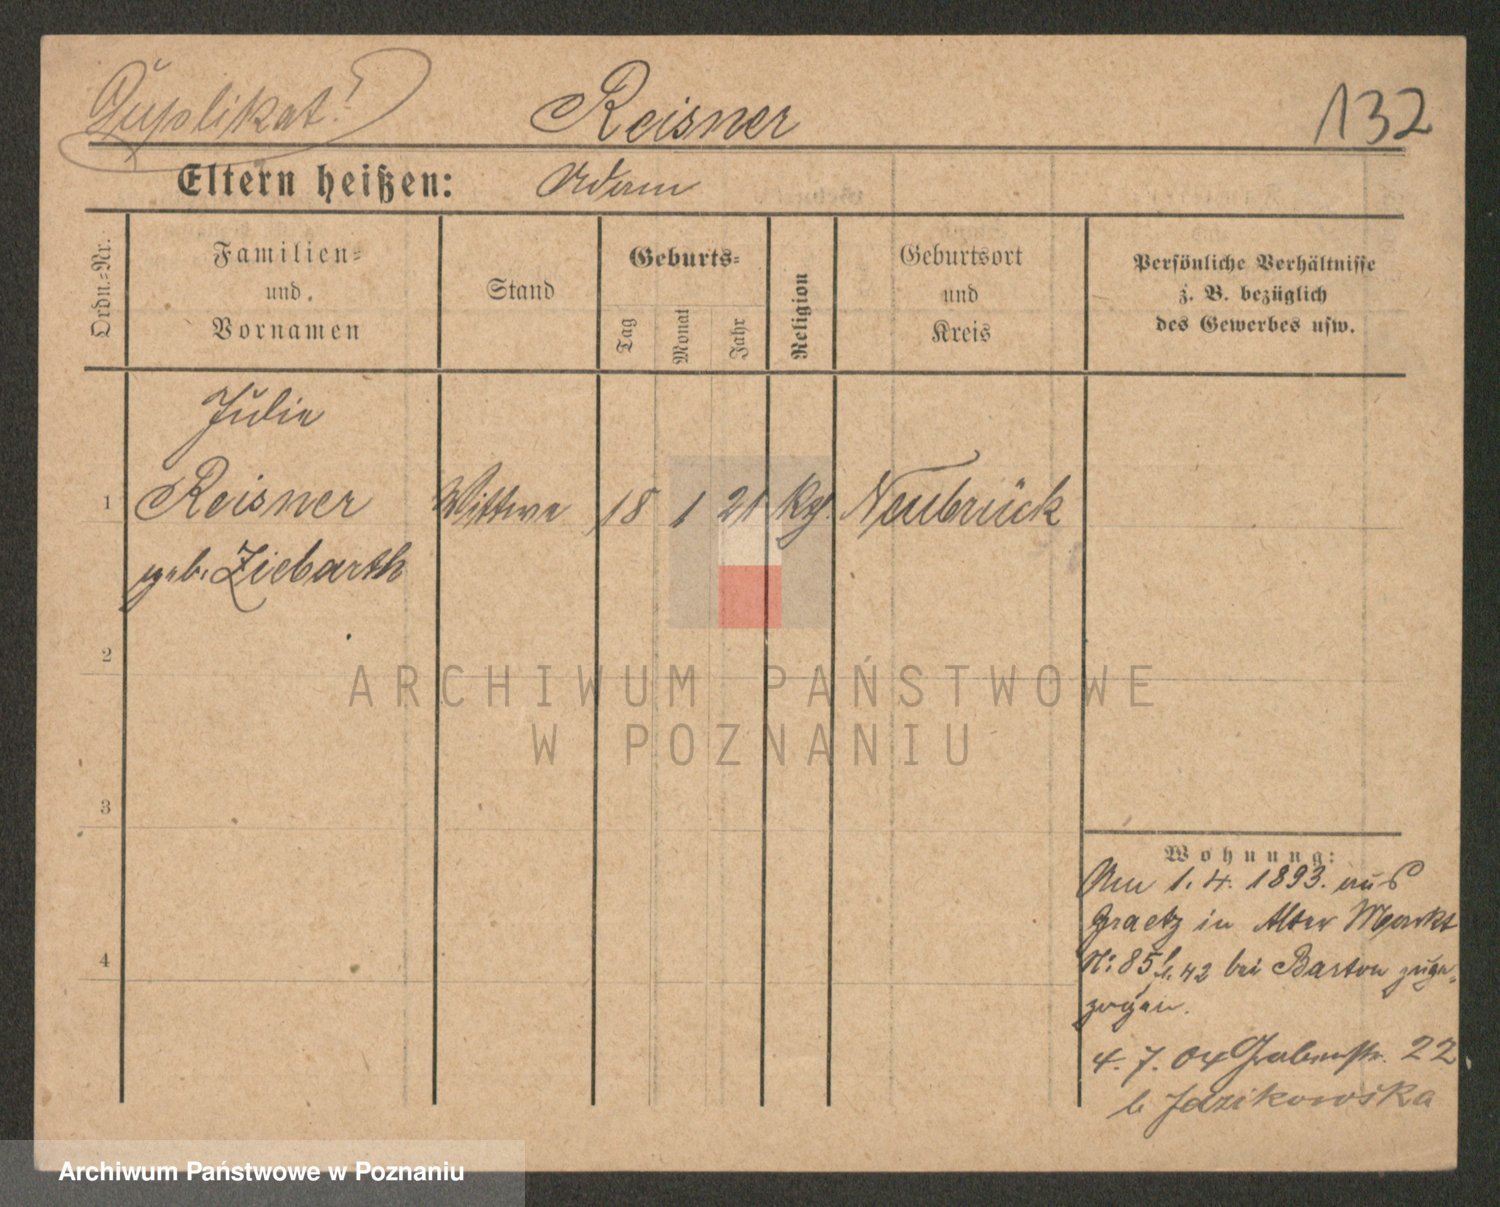 Duplikat!
Reisner
132
Eltern heißen: Adam
Ordn.-Nr.
Familien-
und
Vornamen
Stand
Geburts-
Tag
Monat
Jahr
Religion
Geburtsort
und
Kreis
Persönliche Verhältnisse
z. B. bezüglich
des Gewerbes usw.
Julie
1 Reisner Wittwe 18 1 21 Neubrück
geb. Ziebarth
2
3
4
Wohnung:
Am 1. 4. 1893. aus
Graetz in Alter Markt
No 85 bei Barton zuge-
zogen.
4. 7. 04 Grabenstr. 22
b Jdzikowska
ARCHIWUM PAŃSTWOWE
W POZNANIU
Archiwum Państwowe w Poznaniu